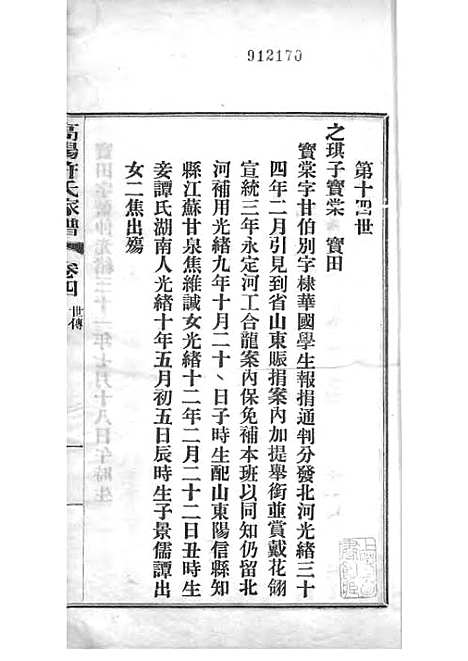 912170
第十四世
之琪子寶棠　寶田
寶棠字甘伯別字棣華國學生報捐通判分發北河光緒三十
四年二月引見到省山東賑捐案內加提舉銜並賞戴花翎
宣統三年永定河工合龍案內保免補本班以同知仍留北
河補用光緒九年十月二十丶日子時生配山東陽信縣知
縣江蘇甘泉焦維諴女光緒十二年二月二十二日丑時生
妾譚氏湖南人光緒十年五月初五日辰時生子景儒譚出
女二焦出殤
高陽許氏家譜
卷四
世傳